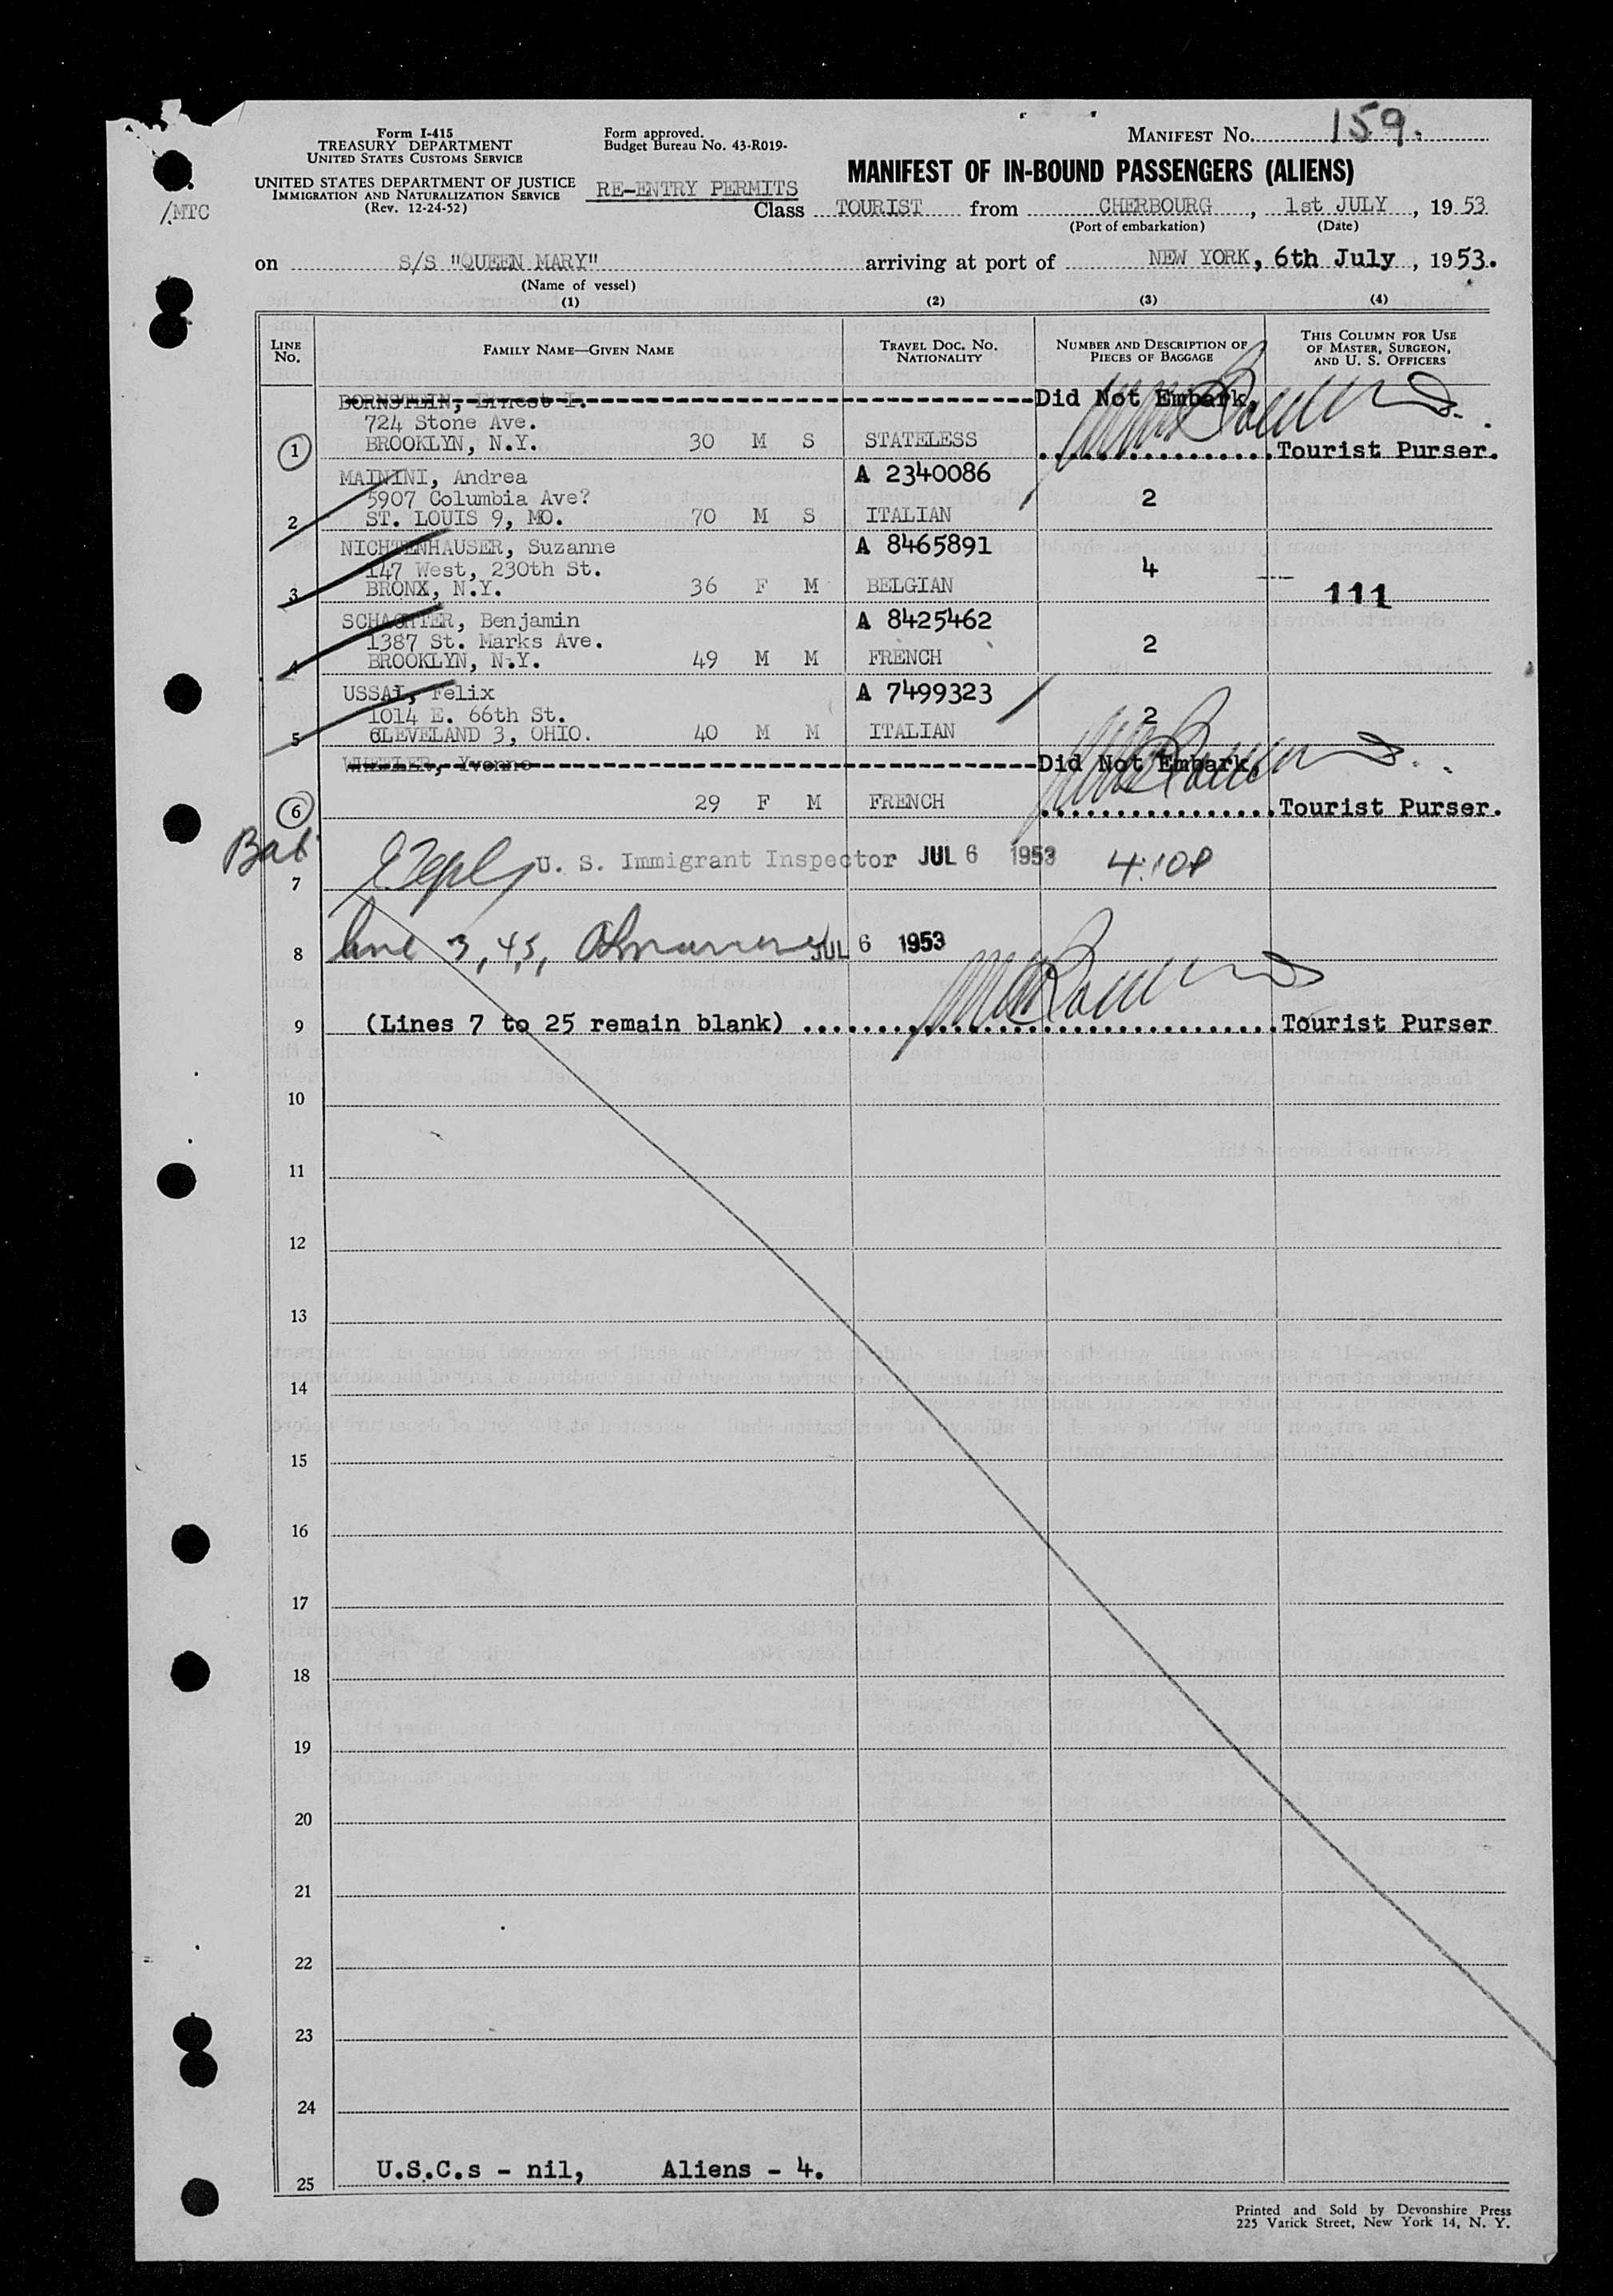 Form I-415
TREASURY DEPARTMENT
UNITED STATES CUSTOMS SERVICE
UNITED STATES DEPARTMENT OF JUSTICE
IMMIGRATION AND NATURALIZATION SERVICE
(Rev. 12-24-52)
/MTC
Form approved.
Budget Bureau No. 43-R019-
RE-ENTRY PERMITS
MANIFEST No. 159.
MANIFEST OF IN-BOUND PASSENGERS (ALIENS)
Class TOURIST from CHERBOURG, 1st JULY, 1953
(Port of embarkation) (Date)
on S/S "QUEEN MARY" arriving at port of NEW YORK, 6th July, 1953.
(Name of vessel)
(1) (2) (3) (4)
LINE No. FAMILY NAME—GIVEN NAME TRAVEL DOC. NO. NATIONALITY NUMBER AND DESCRIPTION OF PIECES OF BAGGAGE THIS COLUMN FOR USE OF MASTER, SURGEON, AND U. S. OFFICERS
BORNSTEIN, Ernest I. Did Not Embark,
724 Stone Ave.
1 BROOKLYN, N.Y. 30 M S STATELESS Tourist Purser.
MAININI, Andrea A 2340086
5907 Columbia Ave? 2
2 ST. LOUIS 9, MO. 70 M S ITALIAN
NICHTENHAUSER, Suzanne A 8465891
147 West, 230th St. 4
3 BRONX, N.Y. 36 F M BELGIAN 111
SCHACHTER, Benjamin A 8425462
1387 St. Marks Ave. 2
4 BROOKLYN, N.Y. 49 M M FRENCH
USSAI, Felix A 7499323
1014 E. 66th St. 2
5 CLEVELAND 3, OHIO. 40 M M ITALIAN
WHEELER, Yvonne Did Not Embark,
6 29 F M FRENCH Tourist Purser.
U. S. Immigrant Inspector JUL 6 1953 4:10P
7
8 line 3, 4, 5, JUL 6 1953
9 (Lines 7 to 25 remain blank) Tourist Purser
10
11
12
13
14
15
16
17
18
19
20
21
22
23
24
25 U.S.C.s - nil, Aliens - 4.
Printed and Sold by Devonshire Press
225 Varick Street, New York 14, N. Y.